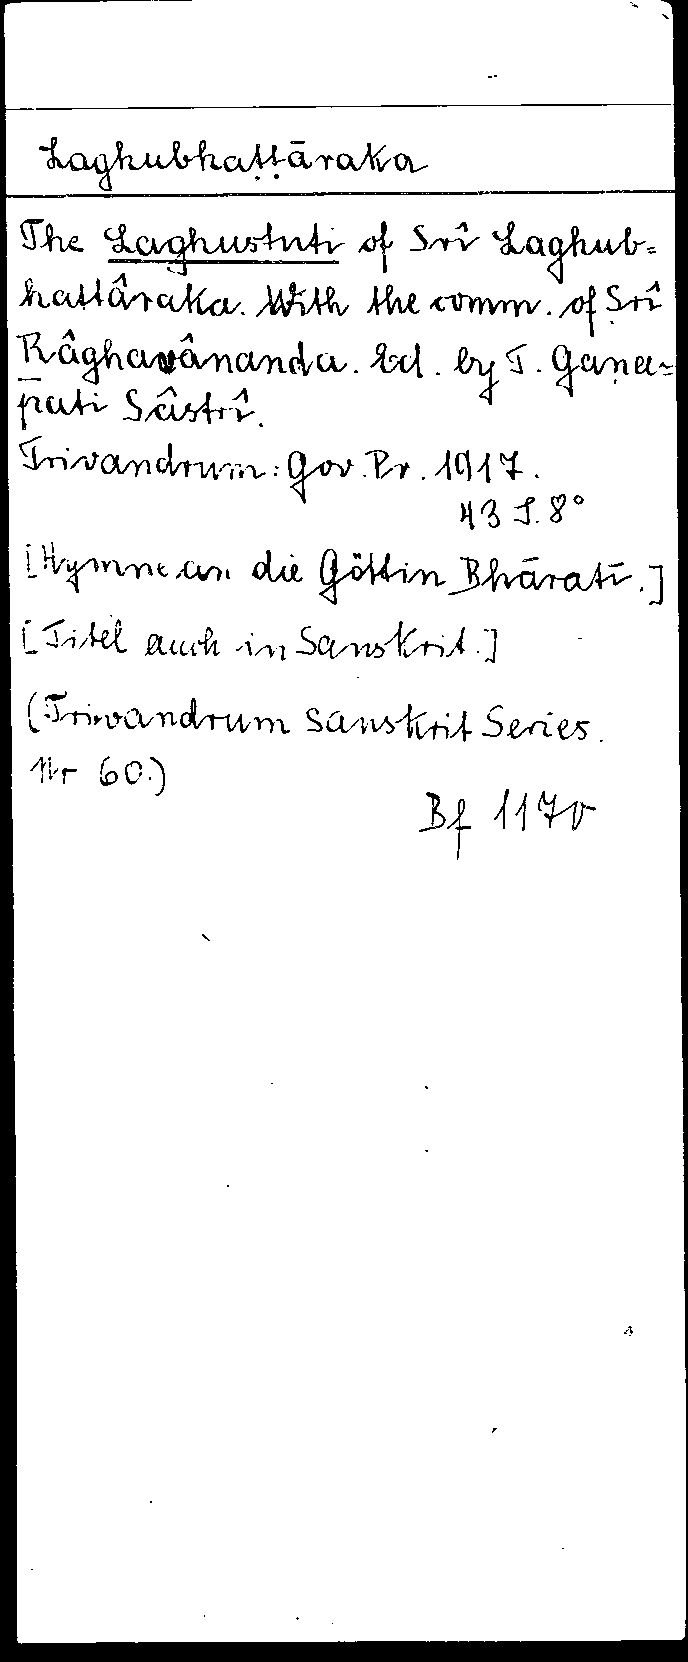 Laghubhaṭṭāraka
The Laghustuti of Srî Laghub=
hattâraka. With the comm. of Srî
Râghavânanda. Ed. by T. Gaṇa=
pati Sâstrî.
Trivandrum: Gov. Pr. 1917.
43 S. 8°
[Hymne an die Göttin Bhāratī.]
[Titel auch in Sanskrit.]
(Trivandrum Sanskrit Series.
Nr 60.)
Bf 1170